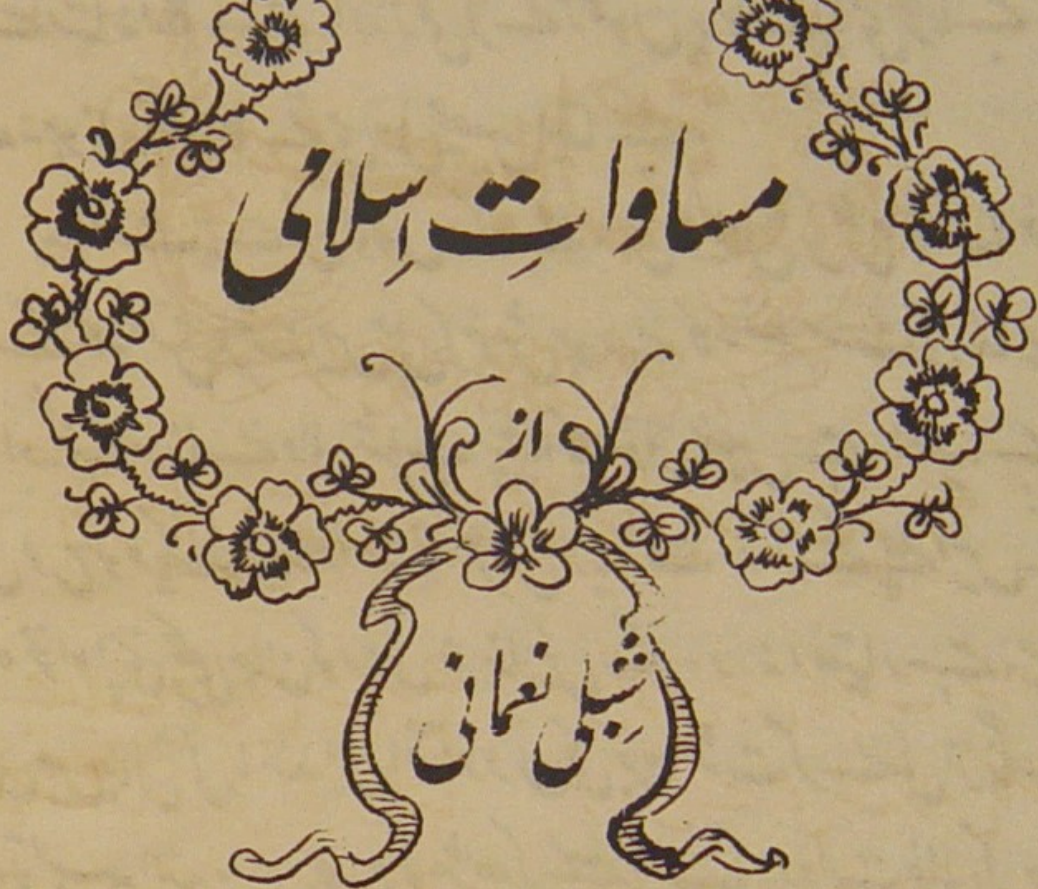 مساواتِ اِسلامی
از
شِبلی نعمانی